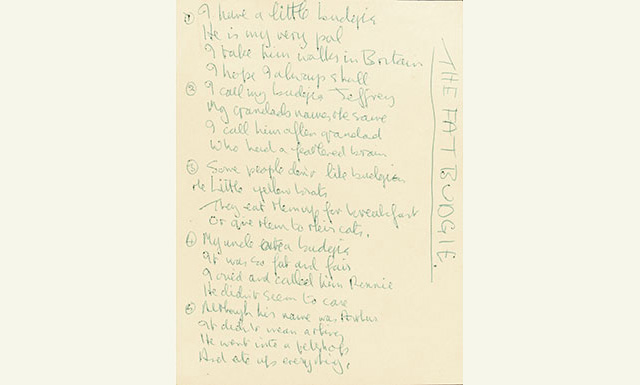 ① I have a little budgie
He is my very pal
I take him walks in Britain
I hope I always shall
② I call my budgie Jeffrey
My grandads name's the same
I call him after grandad
Who had a feathered brain
③ Some people don't like budgies
The little yellow brats
They eat them up for breakfast
Or give them to their cats.
④ My uncle ate a budgie
It was so fat and fair
I cried and called him Ronnie
He didn't seem to care
⑤ Although his name was
It didn't mean a thing
He went into a petshop
And ate up everything.
THE FAT BUDGIE.